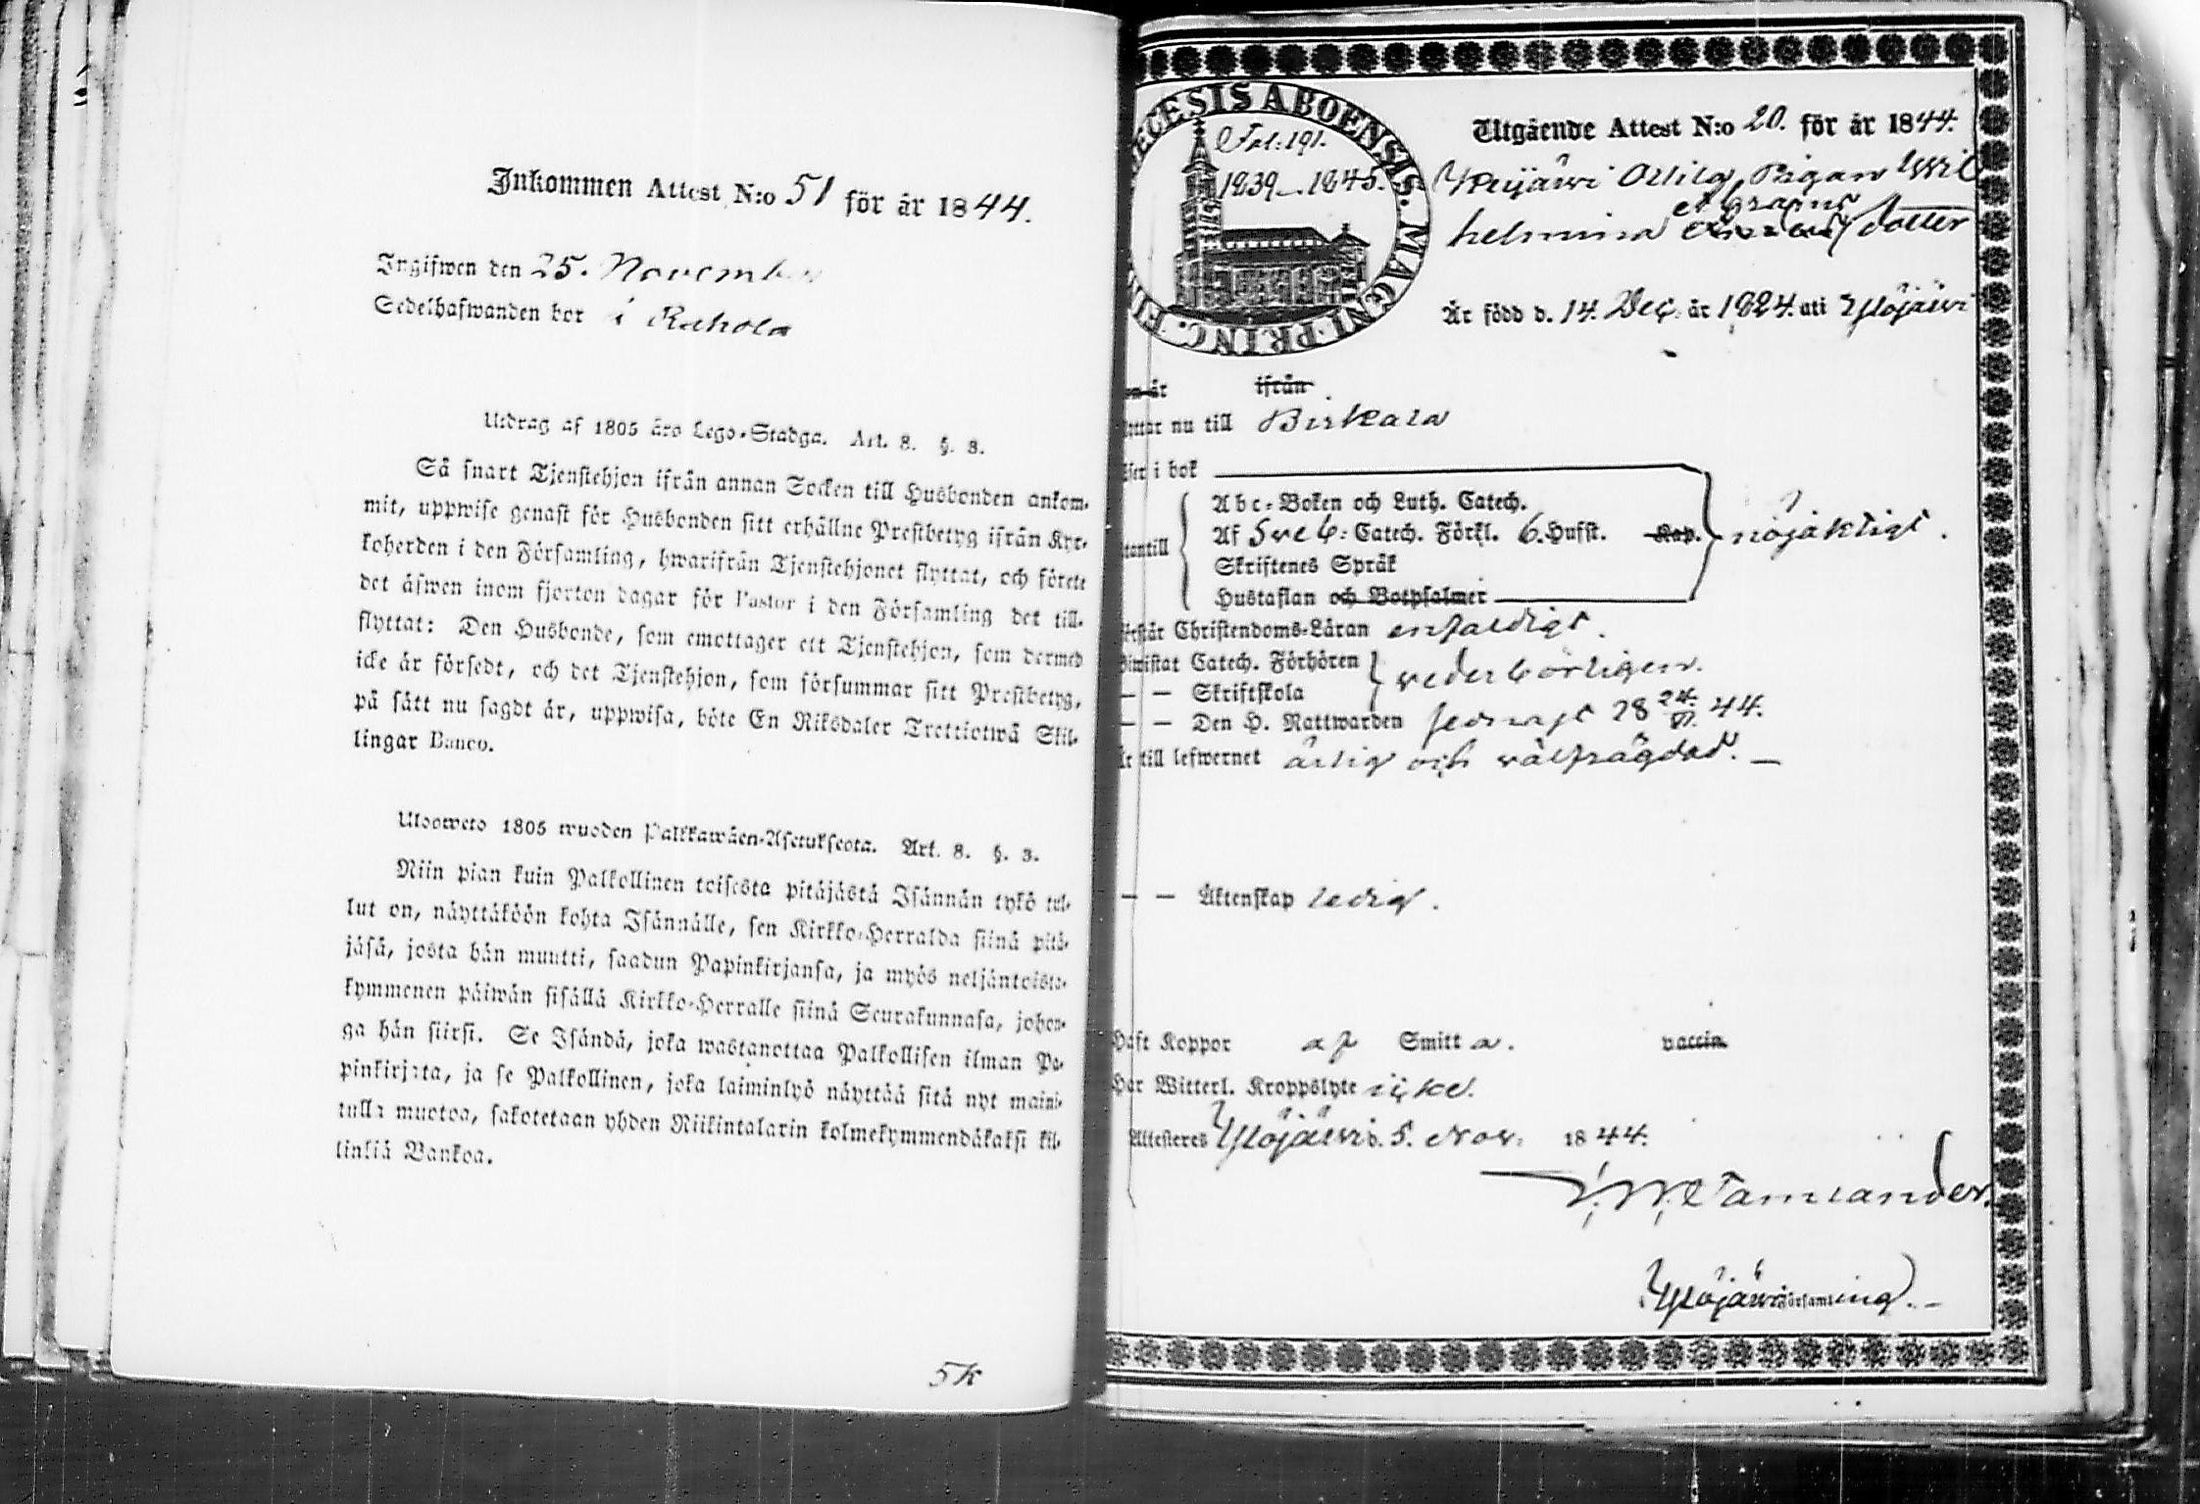 Inkommen Attest N:o 51 för år 1844.
Ingifwen den 25. November
Sedelhafwanden bor i Rahola
Utdrag af 1805 års Lego-Stadga. Art. 8. §. 3.
Så snart Tjenstehjon ifrån annan Socken till Husbonden ankom-
mit, uppwise genast för Husbonden sitt erhållne Prestbetyg ifrån Kyr-
koherden i den Församling, hwarifrån Tjenstehjonet flyttat, och förete
det äfwen inom fjorton dagar för Pastor i den Församling det till-
flyttat: Den Husbonde, som emottager ett Tjenstehjon, som dermed
icke är försedt, och det Tjenstehjon, som försummar sitt Prestbetyg,
på sätt nu sagdt är, uppwisa, böte En Riksdaler Trettiotwå Skil-
lingar Banco.
Ulosweto 1805 wuoden Palkkawäen-Asetuksesta. Art. 8. §. 3.
Niin pian kuin Palkollinen toisesta pitäjästä Isännän tykö tul-
lut on, näyttäköön kohta Isännälle, sen Kirkko-Herralda siinä pitä-
jäsä, josta hän muutti, saadun Papinkirjansa, ja myös neljäntoista-
kymmenen päiwän sisällä Kirkko-Herralle siinä Seurakunnasa, johon-
ga hän siirsi. Se Isändä, joka wastanottaa Palkollisen ilman Pa-
pinkirjata, ja se Palkollinen, joka laiminlyö näyttää sitä nyt maini-
tulla muotoa, sakotetaan yhden Riikintalarin kolmekymmendäkaksi kil-
linkiä Bankoa.
5k
ECESIS ABOENSIS. MAGNI PRINC. FIN
Fol: 191.
1839-1845.
Utgående Attest N:o 20. för år 1844.
Attila, Pigan Wil
helmina dotter
Är född d. 14. Dec. år 1824. uti Ylöjärwi
ifrån
nu till Birkala
i bok
Abc-Boken och Luth. Catech.
Af Sveb: Catech. Förkl. 6. Hufst. Kap. nöjaktigt.
Skriftenes Språk
Hustaflan och Botpsalmer
Christendoms-Läran enfaldigt.
Catech. Förhören
wederbörligen.
— — Skriftskola
— — Den H. Nattwarden sednast 44.
till lefwernet ärlig och välfrägdad. —
— — Äktenskap ledig.
Haft Koppor af Smitta. vaccin
Har Witterl. Kroppslyte icke.
Attesteras Ylöjärwi d. 5. Nov: 1844.
Tamlander.
Ylöjärwi Församling. —